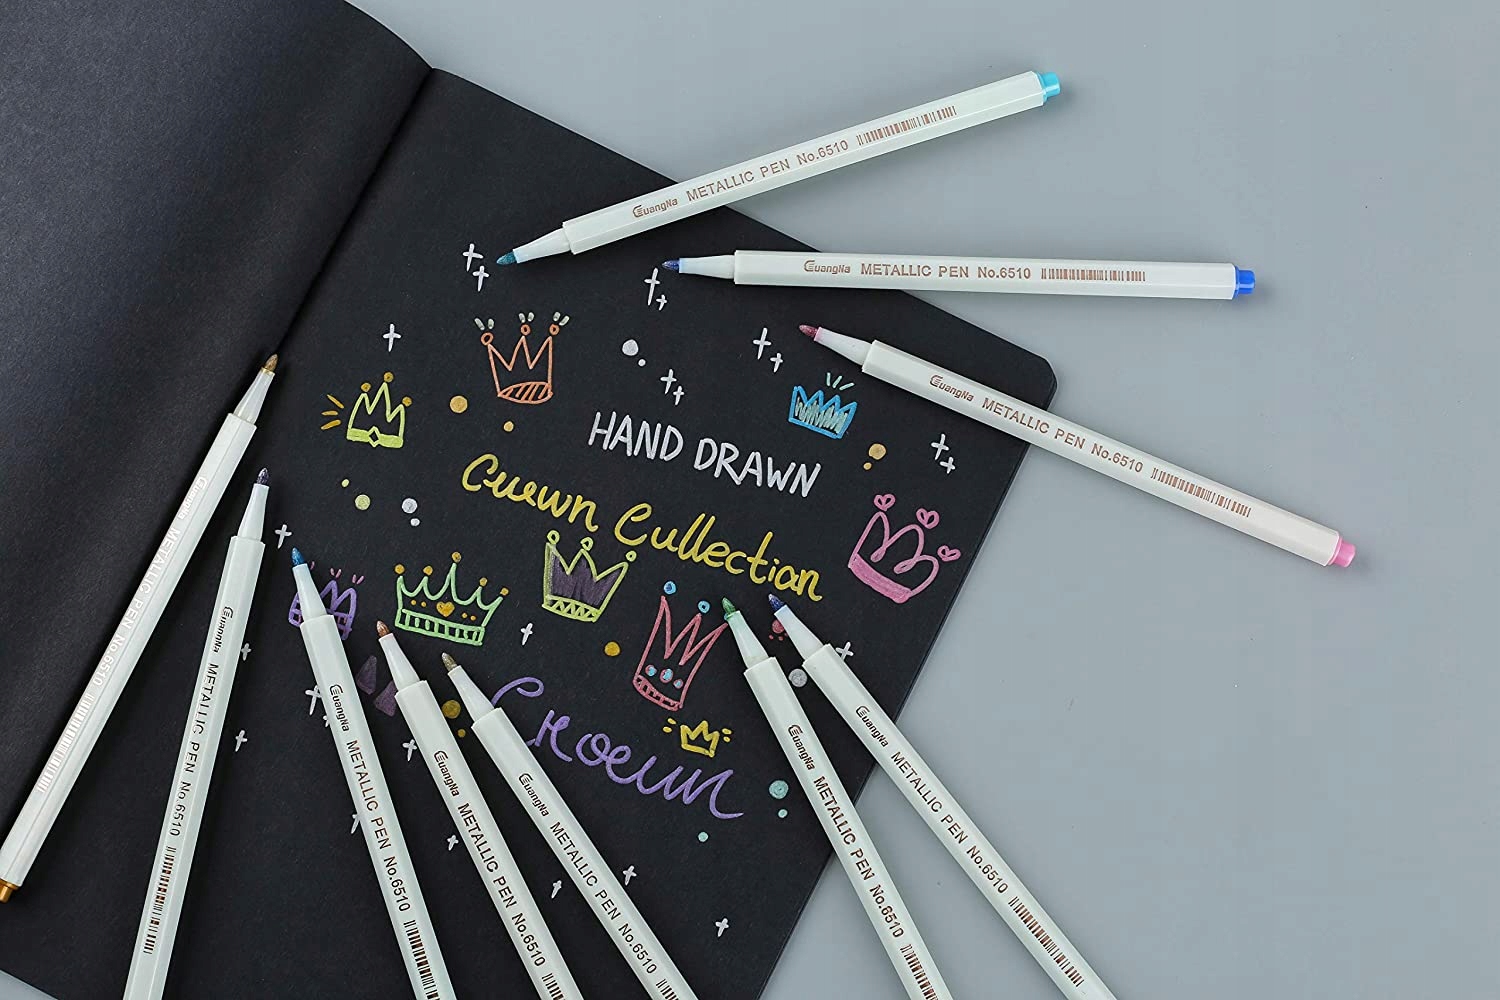 GuangNa METALLIC PEN No.6510
GuangNa METALLIC PEN No.6510
GuangNa METALLIC PEN No.6510
HAND DRAWN
Cuewn Cullectian
Croeun
GuangNa METALLIC PEN No.6510
GuangNa METALLIC PEN No.6510
GuangNa METALLIC PEN No.6510
GuangNa METALLIC PEN No.6510
GuangNa METALLIC PEN No.6510
GuangNa METALLIC PEN No.6510
GuangNa METALLIC PEN No.6510